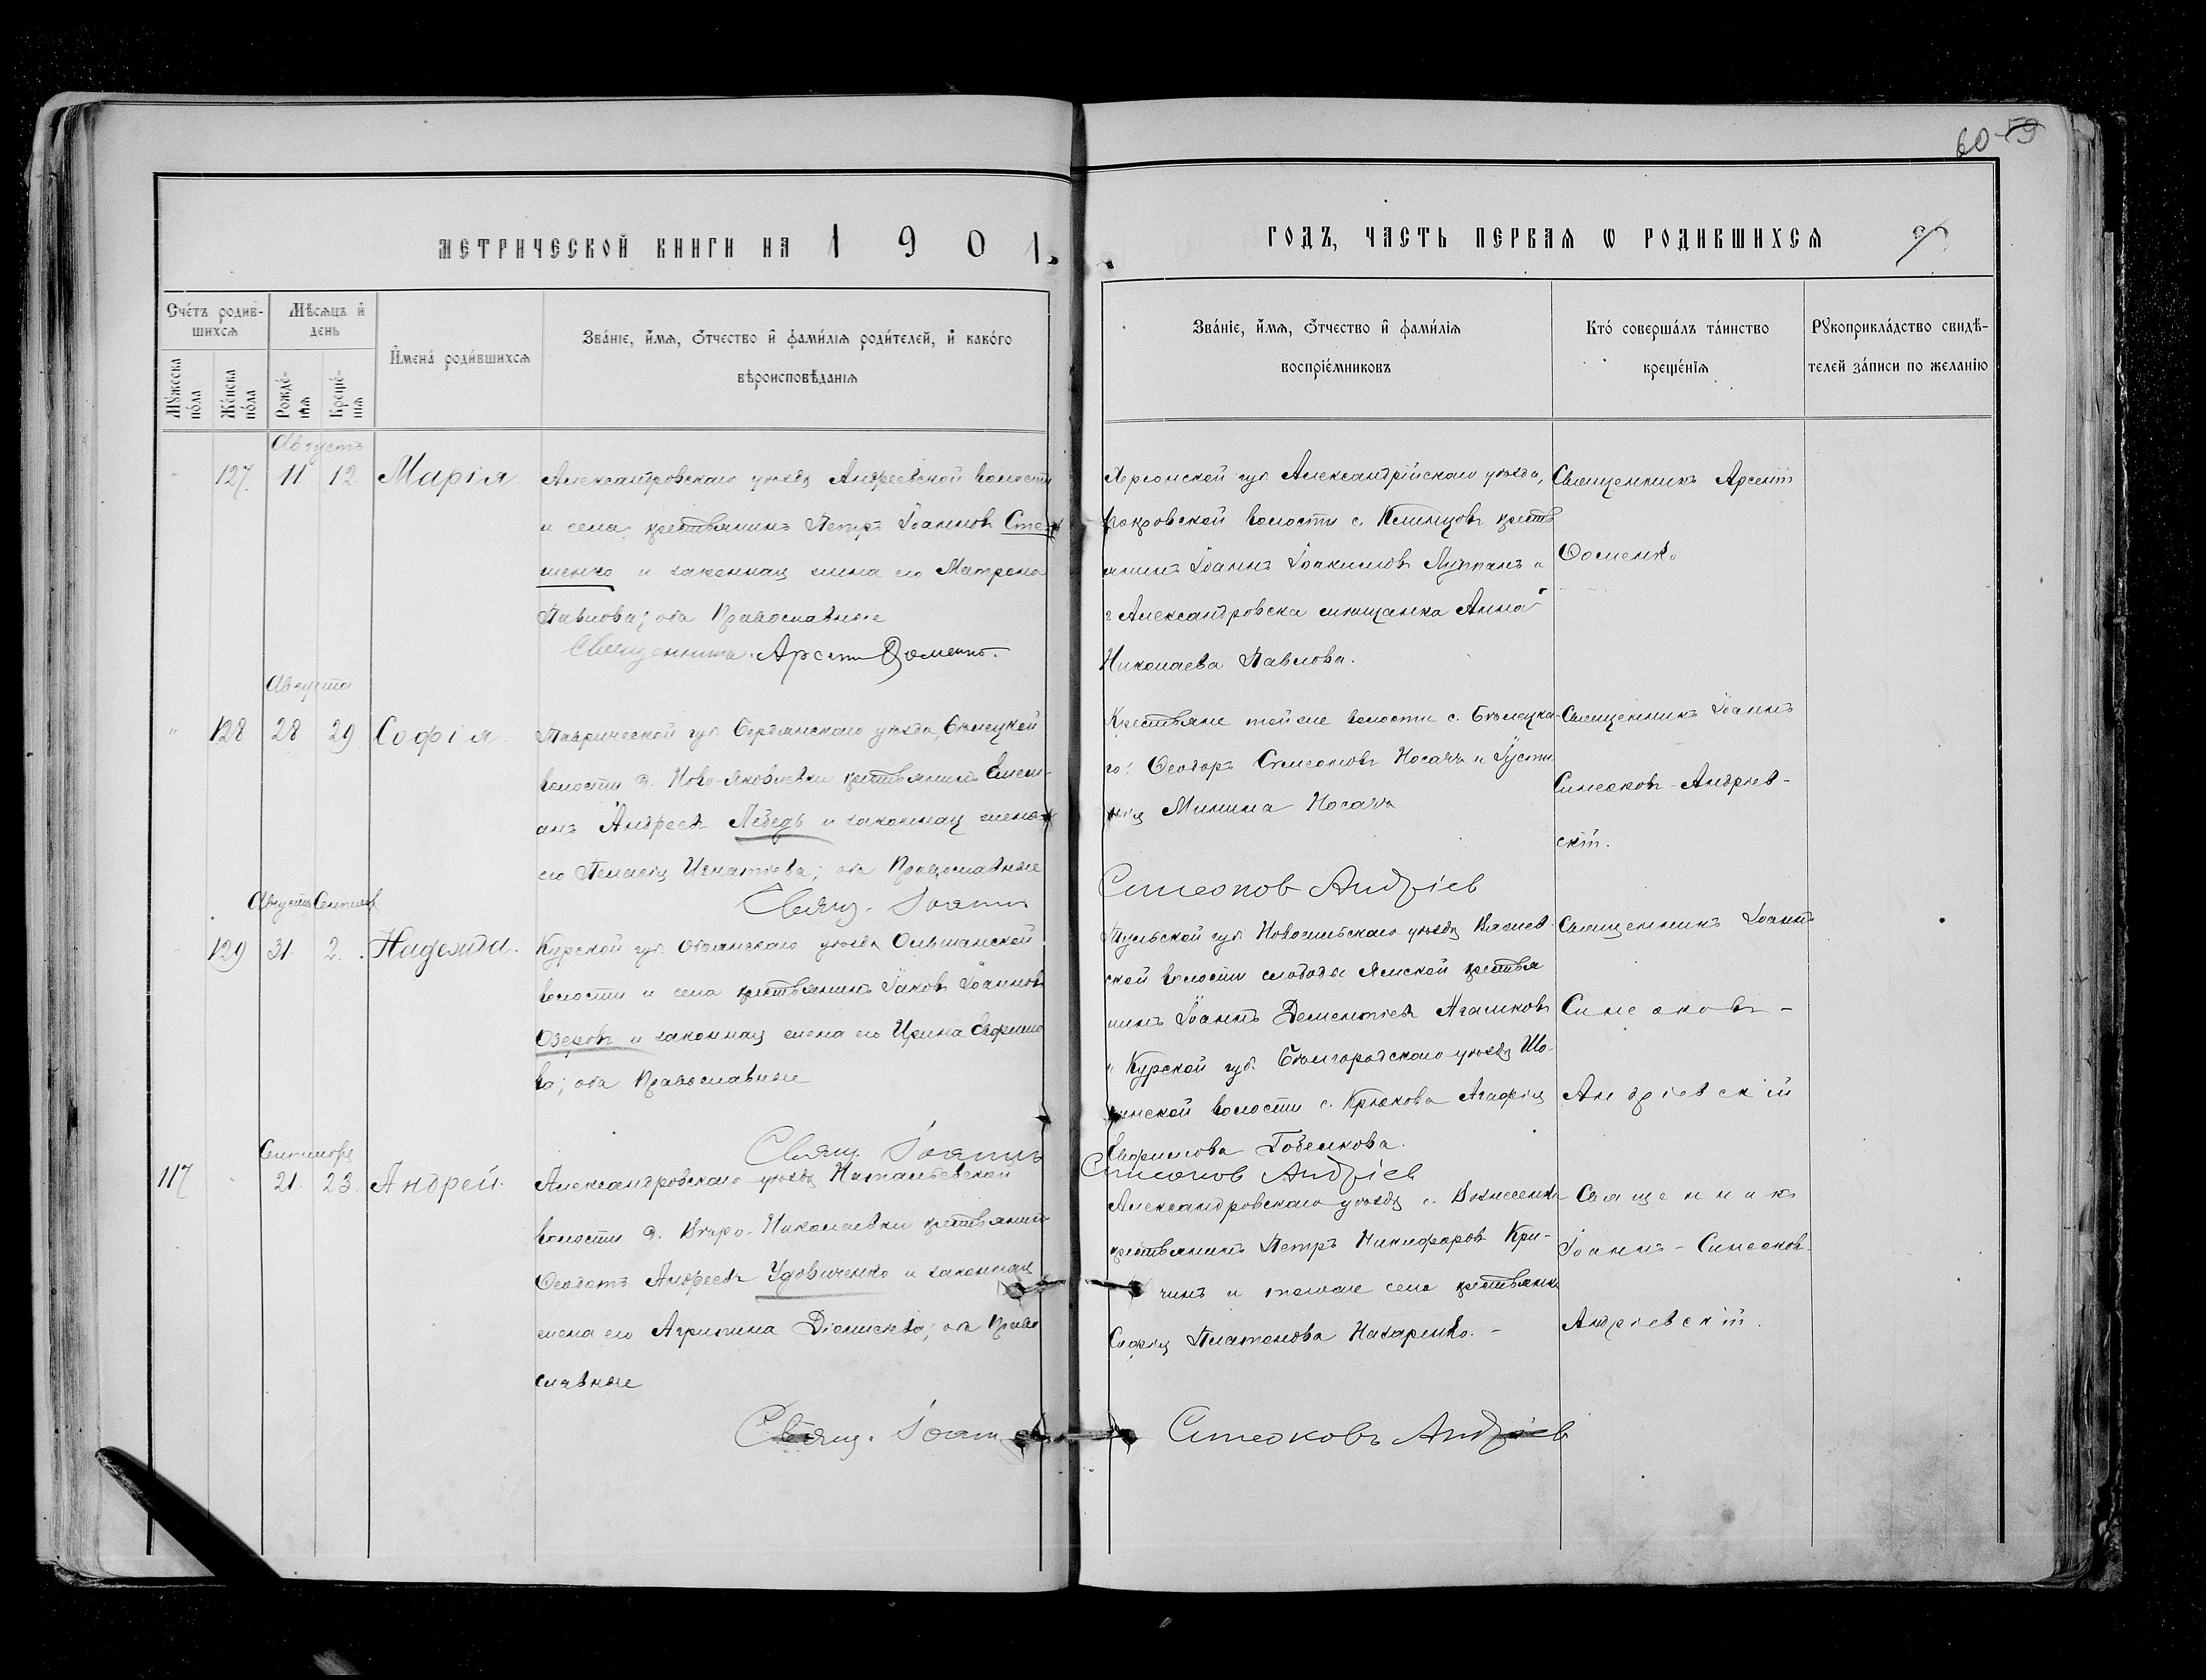 60 59
МЕТРИЧЕСКОЙ КНИГИ НА 1901.
ГОДЪ, ЧАСТЬ ПЕРВАЯ Ѡ РОДИВШИХСЯ
Счéтъ родив-
шихся
Мѣсяцъ и
день
Мꙋ́жеска
пóла
Жéнска
пóла
Рождé-
нія
Крещé-
нія
Именá роди́вшихся
Звáніе, и́мя, Ѻ́тчество и фами́лія роди́телей, и какóго
вѣроисповѣ́данія
Звáніе, и́мя, Ѻ́тчество и фами́лія
воспріéмниковъ
Ктó совершáлъ тáинство
крещéнія
Рꙋкоприклáдство свидѣ́-
телей зáписи по желáнію
Августъ
127. 11 12 Марія
Александровскаго уѣзда Андреевской волости
и села, крестьянинъ Петръ Іоанновъ Сте-
шенко и законная жена его Матрена
Павлова; оба Православные
Священникъ Арсеній Фоменко.
Херсонской губ. Александрійскаго уѣзда,
Покровской волости с. Клинцовъ кресть
янинъ Іоаннъ Іоакимовъ Луппанъ и
г Александровска мѣщанка Анна
Николаева Павлова.
Священникъ Арсеній
Фоменко
Августа
128 28 29 Софія
Таврической губ Бердянскаго уѣзда, Бѣлецкой
волости д. Ново-Яковлевки крестьянинъ Емель-
анъ Андреевъ Лебедь и законная жена
его Пелагія Игнатіева; оба Православные
Свящ. Іоаннъ
Крестьяне той же волости с. Бѣлецка-
го: Ѳеодоръ Симеоновъ Носачъ и Іусти
нія Минина Носачъ
Синеоков Андріев
Священникъ Іоаннъ
Синеоковъ-Андріев-
скій.
Августъ Сентябр
129 31 2. Надежда.
Курской губ. Обоянскаго уѣзда Ольшанской
волости и села крестьянинъ Іаковъ Іоанновъ
Озеровъ и законная жена его Ирина Ефимо
ва; оба Православные
Свящ. Іоаннъ
Тульской губ. Новосильскаго уѣзда
ской волости слободы Ямской крестья
нинъ Іоаннъ Дементіевъ Агашковъ
и Курской губ. Бѣлгородскаго уѣзда Шо-
пинской волости с. Крюкова Агафія
Ефимова
Синеоков Андріев
Священникъ Іоаннъ
Синеоковъ -
Андріевскій
Сентября
117 21. 23. Андрей.
Александровскаго уѣзда Натальевской
волости д. Вѣро-Николаевки крестьянинъ
Ѳеодотъ Андреевъ Удовиченко и законная
жена его Агрипина Діонисіева; оба Право
славные
Свящ. Іоанн
Александровскаго уѣзда с. Вознесенки
крестьянинъ Петръ Никифоровъ Кри-
чинъ и тогоже села крестьянка
Софія Платонова Назаренко. -
Синеоковъ Андріев
Священникъ
Іоаннъ-Синеоковъ-
Андріевскій.